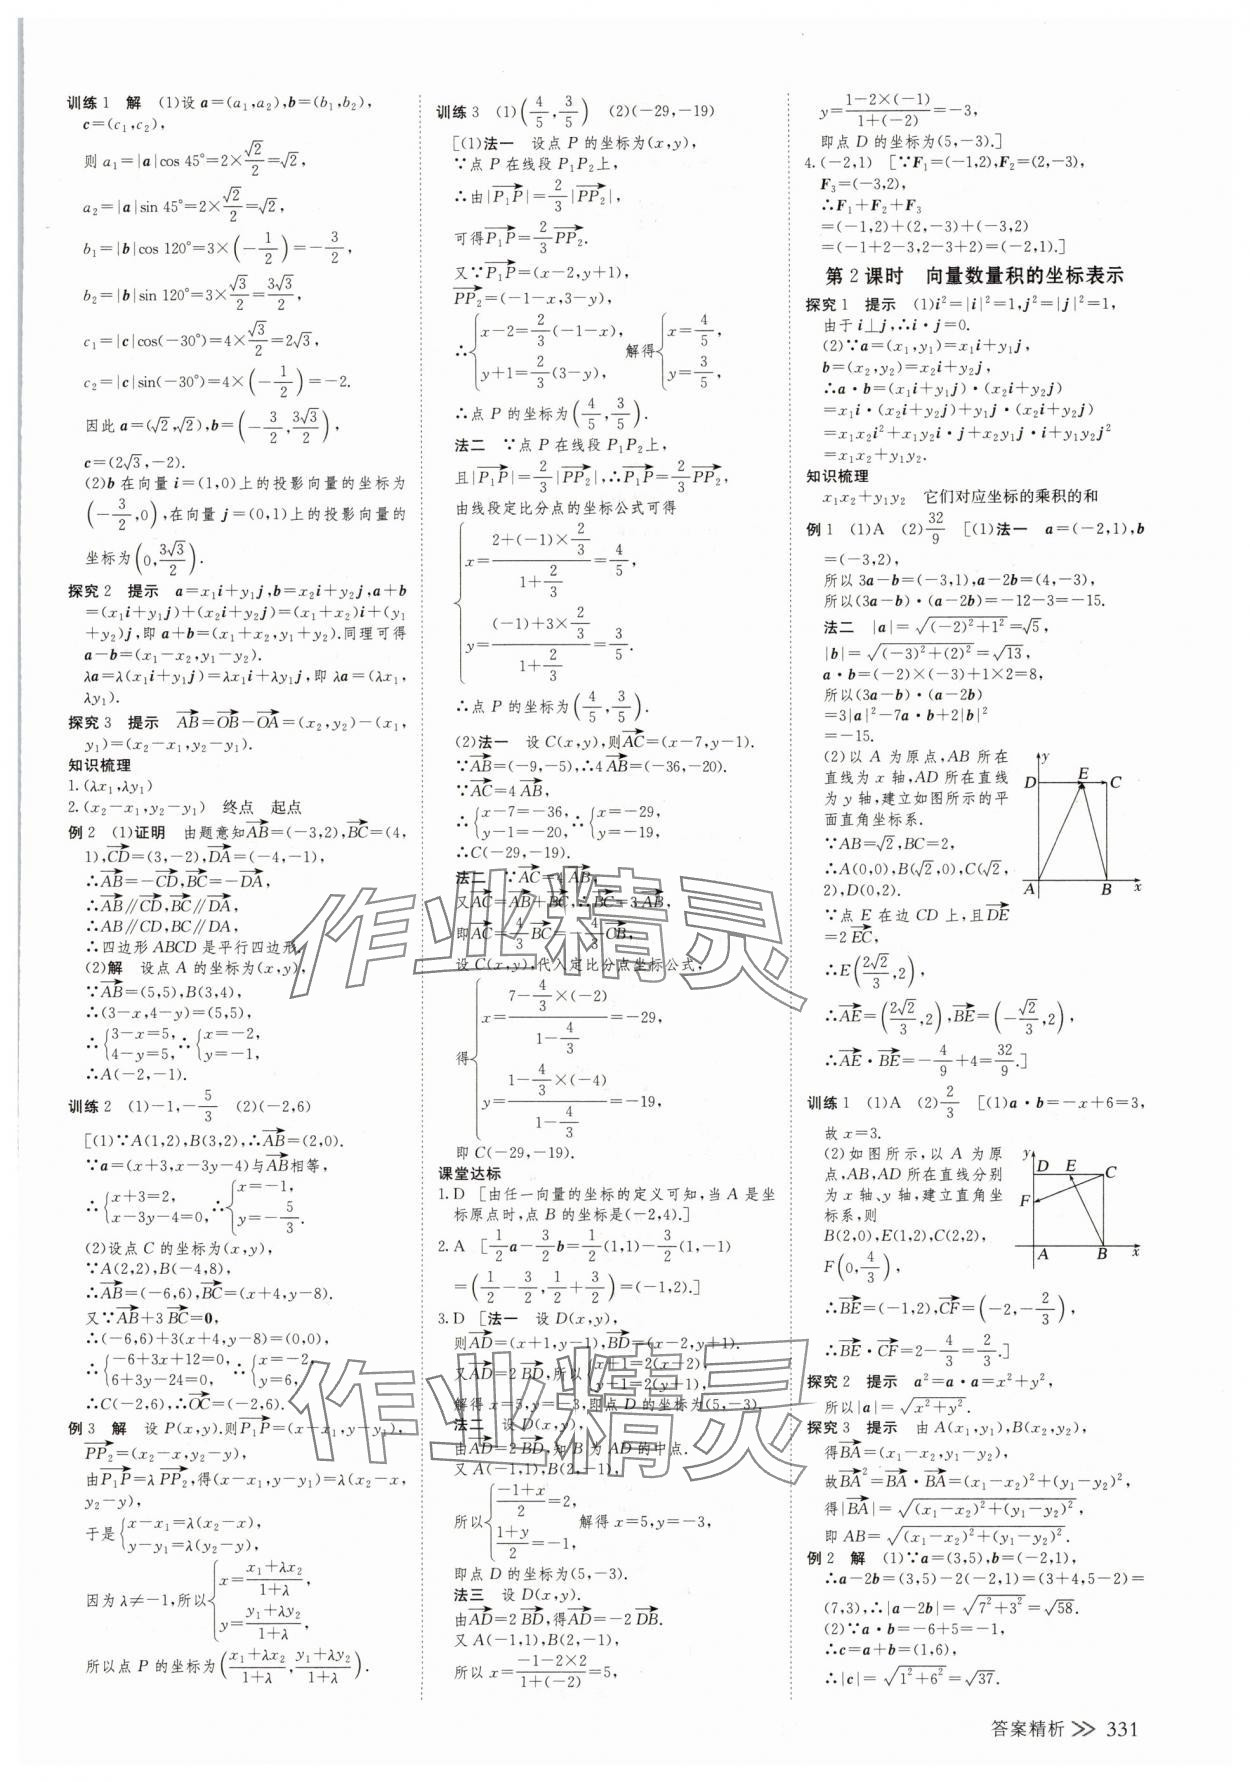 训练1 解 (1)设 a=(a₁,a₂),b=(b₁,b₂),
c=(c₁,c₂),
则 a₁=|a|cos 45°=2×√2/2=√2,
a₂=|a|sin 45°=2×√2/2=√2,
b₁=|b|cos 120°=3×(-1/2)=-3/2,
b₂=|b|sin 120°=3×√3/2=3√3/2,
c₁=|c|cos(-30°)=4×√3/2=2√3,
c₂=|c|sin(-30°)=4×(-1/2)=-2.
因此 a=(√2,√2),b=(-3/2,3√3/2),
c=(2√3,-2).
(2)b 在向量 i=(1,0)上的投影向量的坐标为
(-3/2,0),在向量 j=(0,1)上的投影向量的
坐标为(0,3√3/2).
探究2 提示 a=x₁i+y₁j,b=x₂i+y₂j,a+b
=(x₁i+y₁j)+(x₂i+y₂j)=(x₁+x₂)i+(y₁
+y₂)j,即 a+b=(x₁+x₂,y₁+y₂).同理可得
a-b=(x₁-x₂,y₁-y₂).
λa=λ(x₁i+y₁j)=λx₁i+λy₁j,即 λa=(λx₁,
λy₁).
探究3 提示 AB→=OB→-OA→=(x₂,y₂)-(x₁,
y₁)=(x₂-x₁,y₂-y₁).
知识梳理
1.(λx₁,λy₁)
2.(x₂-x₁,y₂-y₁) 终点 起点
例2 (1)证明 由题意知AB→=(-3,2),BC→=(4,
1),CD→=(3,-2),DA→=(-4,-1),
∴AB→=-CD→,BC→=-DA→,
∴AB→∥CD→,BC→∥DA→,
∴AB∥CD,BC∥DA,
∴四边形 ABCD 是平行四边形.
(2)解 设点 A 的坐标为(x,y),
∵AB→=(5,5),B(3,4),
∴(3-x,4-y)=(5,5),
∴{3-x=5, 4-y=5, ∴{x=-2, y=-1,
∴A(-2,-1).
训练2 (1)-1,-5/3 (2)(-2,6)
[(1)∵A(1,2),B(3,2),∴AB→=(2,0).
∵a=(x+3,x-3y-4)与AB→相等,
∴{x+3=2, x-3y-4=0, ∴{x=-1, y=-5/3.
(2)设点 C 的坐标为(x,y),
∵A(2,2),B(-4,8),
∴AB→=(-6,6),BC→=(x+4,y-8).
又∵AB→+3BC→=0,
∴(-6,6)+3(x+4,y-8)=(0,0),
∴{-6+3x+12=0, 6+3y-24=0, ∴{x=-2, y=6,
∴C(-2,6),∴OC→=(-2,6).
例3 解 设 P(x,y).则P₁P→=(x-x₁,y-y₁),
PP₂→=(x₂-x,y₂-y),
由P₁P→=λPP₂→,得(x-x₁,y-y₁)=λ(x₂-x,
y₂-y),
于是{x-x₁=λ(x₂-x), y-y₁=λ(y₂-y),
因为 λ≠-1,所以{x=(x₁+λx₂)/(1+λ), y=(y₁+λy₂)/(1+λ),
所以点 P 的坐标为((x₁+λx₂)/(1+λ),(y₁+λy₂)/(1+λ)).
训练3 (1)(4/5,3/5) (2)(-29,-19)
[(1)法一 设点 P 的坐标为(x,y),
∵点 P 在线段 P₁P₂上,
∴由|P₁P→|=2/3|PP₂→|,
可得P₁P→=2/3PP₂→.
又∵P₁P→=(x-2,y+1),
PP₂→=(-1-x,3-y),
∴{x-2=2/3(-1-x), y+1=2/3(3-y), 解得{x=4/5, y=3/5,
∴点 P 的坐标为(4/5,3/5).
法二 ∵点 P 在线段 P₁P₂上,
且|P₁P→|=2/3|PP₂→|,∴P₁P→=2/3PP₂→,
由线段定比分点的坐标公式可得
{x=(2+(-1)×2/3)/(1+2/3)=4/5,
y=((-1)+3×2/3)/(1+2/3)=3/5.
∴点 P 的坐标为(4/5,3/5).
(2)法一 设 C(x,y),则AC→=(x-7,y-1).
∵AB→=(-9,-5),∴4AB→=(-36,-20).
∵AC→=4AB→,
∴{x-7=-36, y-1=-20, ∴{x=-29, y=-19,
∴C(-29,-19).
法二 ∵AC→=4AB→,
又AC→=AB→+BC→,∴BC→=3AB→,
即AC→=4/3BC→=-4/3CB→,
设 C(x,y),代入定比分点坐标公式,
得{x=(7-4/3×(-2))/(1-4/3)=-29,
y=(1-4/3×(-4))/(1-4/3)=-19,
即 C(-29,-19).
课堂达标
1.D [由任一向量的坐标的定义可知,当 A 是坐
标原点时,点 B 的坐标是(-2,4).]
2.A [1/2a-3/2b=1/2(1,1)-3/2(1,-1)
=(1/2-3/2,1/2+3/2)=(-1,2).]
3.D [法一 设 D(x,y),
则AD→=(x+1,y-1),BD→=(x-2,y+1).
又AD→=2BD→,所以{x+1=2(x-2), y-1=2(y+1),
解得 x=5,y=-3,即点 D 的坐标为(5,-3).
法二 设 D(x,y),
由AD→=2BD→,知 B 为 AD 的中点.
又 A(-1,1),B(2,-1),
所以{(-1+x)/2=2, (1+y)/2=-1, 解得 x=5,y=-3,
即点 D 的坐标为(5,-3).
法三 设 D(x,y).
由AD→=2BD→,得AD→=-2DB→.
又 A(-1,1),B(2,-1),
所以 x=(-1-2×2)/(1+(-2))=5,
y=(1-2×(-1))/(1+(-2))=-3,
即点 D 的坐标为(5,-3).]
4.(-2,1) [∵F₁=(-1,2),F₂=(2,-3),
F₃=(-3,2),
∴F₁+F₂+F₃
=(-1,2)+(2,-3)+(-3,2)
=(-1+2-3,2-3+2)=(-2,1).]
第2课时 向量数量积的坐标表示
探究1 提示 (1)i²=|i|²=1,j²=|j|²=1,
由于 i⊥j,∴i·j=0.
(2)∵a=(x₁,y₁)=x₁i+y₁j,
b=(x₂,y₂)=x₂i+y₂j,
∴a·b=(x₁i+y₁j)·(x₂i+y₂j)
=x₁i·(x₂i+y₂j)+y₁j·(x₂i+y₂j)
=x₁x₂i²+x₁y₂i·j+x₂y₁j·i+y₁y₂j²
=x₁x₂+y₁y₂.
知识梳理
x₁x₂+y₁y₂ 它们对应坐标的乘积的和
例1 (1)A (2)32/9 [(1)法一 a=(-2,1),b
=(-3,2),
所以 3a-b=(-3,1),a-2b=(4,-3),
所以(3a-b)·(a-2b)=-12-3=-15.
法二 |a|=√((-2)²+1²)=√5,
|b|=√((-3)²+(2)²)=√13,
a·b=(-2)×(-3)+1×2=8,
所以(3a-b)·(a-2b)
=3|a|²-7a·b+2|b|²
=-15.
(2)以 A 为原点,AB 所在
直线为 x 轴,AD 所在直线
为 y 轴,建立如图所示的平
面直角坐标系.
∵AB=√2,BC=2,
∴A(0,0),B(√2,0),C(√2,
2),D(0,2).
∵点 E 在边 CD 上,且DE→
=2EC→,
∴E(2√2/3,2),
∴AE→=(2√2/3,2),BE→=(-√2/3,2),
∴AE→·BE→=-4/9+4=32/9.]
y
D E C
A B x
训练1 (1)A (2)2/3 [(1)a·b=-x+6=3,
故 x=3.
(2)如图所示,以 A 为原
点,AB,AD 所在直线分别
为 x 轴、y 轴,建立直角坐
标系,则
B(2,0),E(1,2),C(2,2),
F(0,4/3),
∴BE→=(-1,2),CF→=(-2,-2/3),
∴BE→·CF→=2-4/3=2/3.]
y
D E C
F
A B x
探究2 提示 a²=a·a=x²+y²,
所以|a|=√(x²+y²).
探究3 提示 由 A(x₁,y₁),B(x₂,y₂),
得BA→=(x₁-x₂,y₁-y₂),
故BA→²=BA→·BA→=(x₁-x₂)²+(y₁-y₂)²,
得|BA→|=√((x₁-x₂)²+(y₁-y₂)²),
即 AB=√((x₁-x₂)²+(y₁-y₂)²).
例2 解 (1)∵a=(3,5),b=(-2,1),
∴a-2b=(3,5)-2(-2,1)=(3+4,5-2)=
(7,3),∴|a-2b|=√(7²+3²)=√58.
(2)∵a·b=-6+5=-1,
∴c=a+b=(1,6),
∴|c|=√(1²+6²)=√37.
作业精灵
作业精灵
答案精析 >> 331